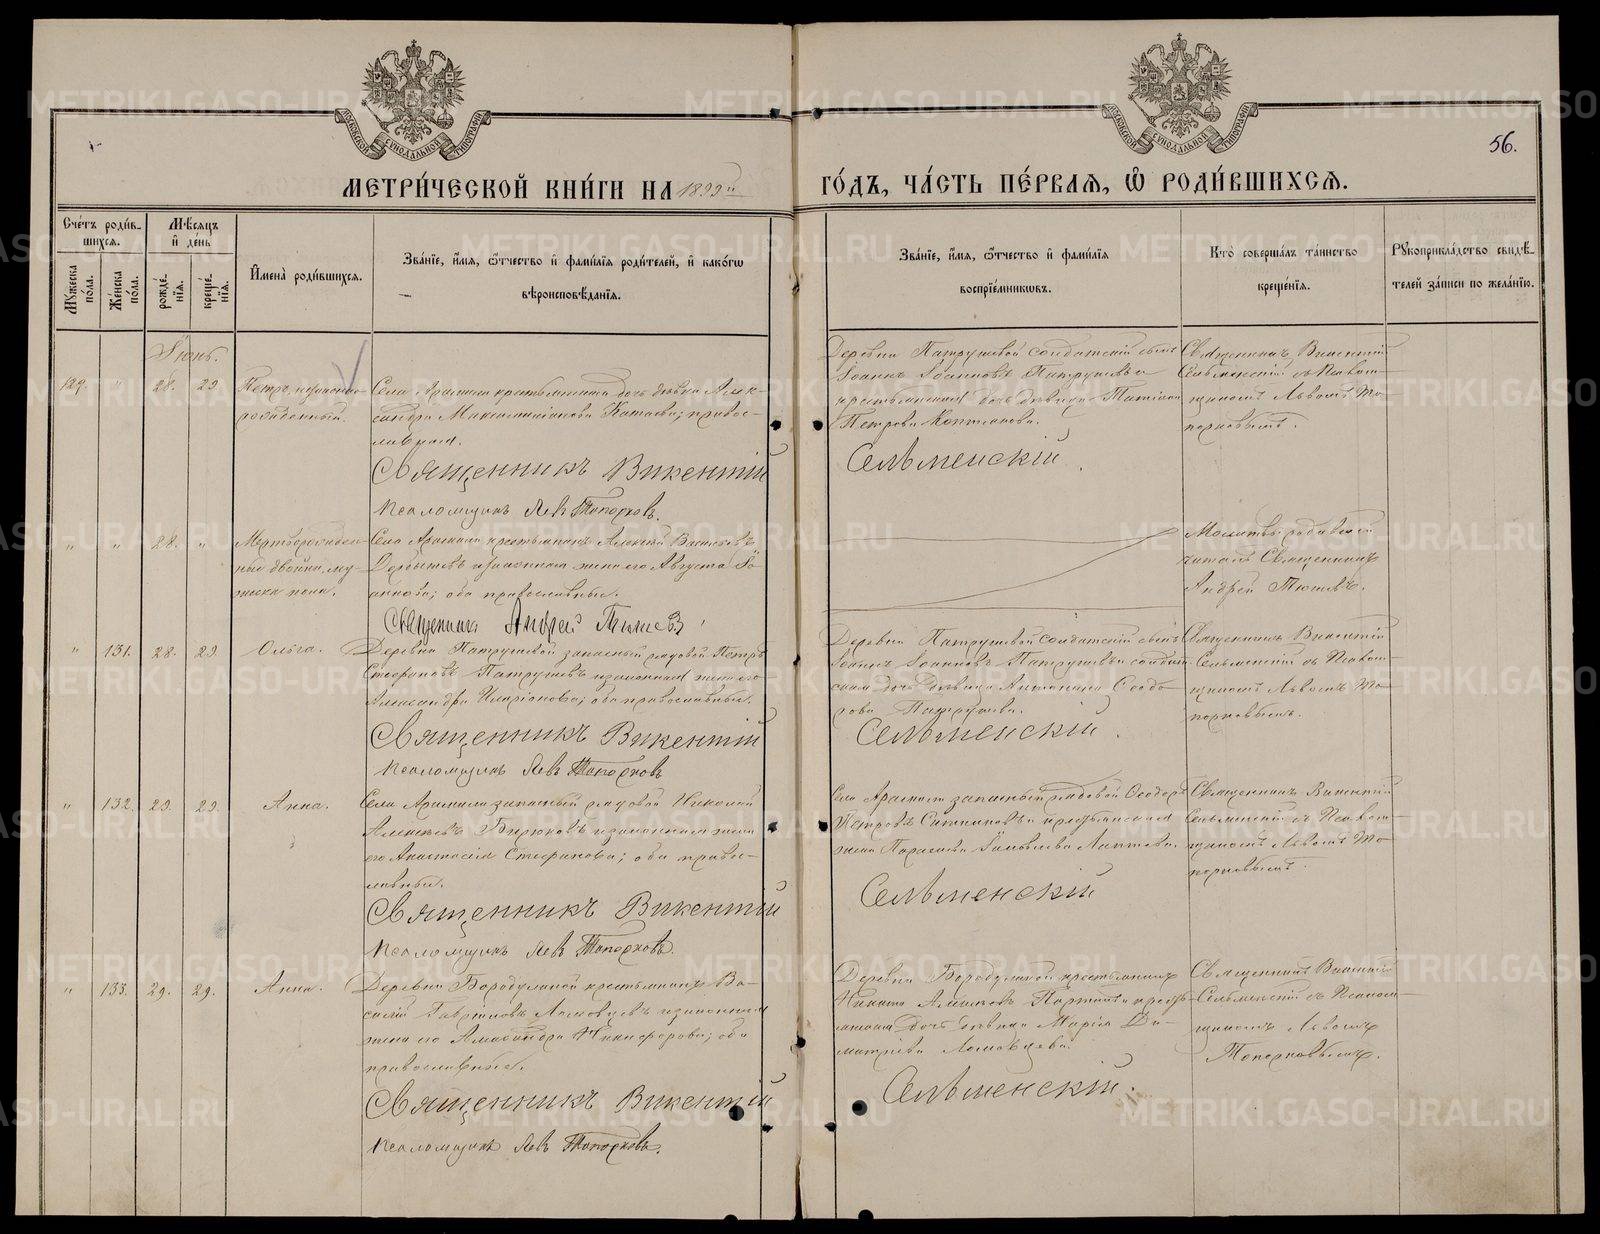 МОСКОВСКОЙ СѴНОДАЛЬНОЙ ТИПОГРАФІИ
МОСКОВСКОЙ СѴНОДАЛЬНОЙ ТИПОГРАФІИ
56.
МЕТРИ́ЧЕСКОЙ КНИ́ГИ НА 1899й
ГО́ДЪ, ЧА́СТЬ ПЕ́РВАѦ, Ѡ҆ РОДИ́ВШИХСѦ.
Сче́тъ роди́в-
шихсѧ.
Мꙋ́жеска по́ла.
Же́нска по́ла.
Мѣ́сѧцъ и҆ де́нь
рожде́-
нїѧ.
креще́-
нїѧ.
И҆мена̀ роди́вшихсѧ.
Зва́нїе, и҆́мѧ, ѻ҆́тчество и҆ фами́лїѧ роди́телей, и҆ како́гѡ
вѣроисповѣ́данїѧ.
Зва́нїе, и҆́мѧ, ѻ҆́тчество и҆ фами́лїѧ
воспрїе́мникѡвъ.
Кто̀ соверша́лъ та́инство
креще́нїѧ.
Рꙋкоприкла́дство свидѣ́-
телей за́писи по жела́нїю.
Іюнь.
129. " 28. 29.
Петръ, незаконно-
рожденный.
Села Арамили крестьянская дочь девица Алек-
сандра Максимилианова Катаева; право-
славная.
Священникъ Викентій
Псаломщикъ Левъ Топорковъ.
Деревни Патрушевой солдатскій сынъ
Іоаннъ Іоанновъ Патрушевъ и
крестьянская дочь девица
Петрова
Сельменскій
Священникъ Викентій
Сельменскій съ Псалом-
щикомъ Львомъ То-
порковымъ.
" " 28. "
Мертворожден-
ные двойни, му-
жска пола.
Села Арамили крестьянинъ Алексей
и законная жена его Августа Іо-
аннова; оба православные.
Священникъ Андрей Тюшевъ
Молитвы родившей
читалъ Священникъ
Андрей Тюшевъ.
" 131. 28. 29.
Ольга.
Деревни Патрушевой запасный рядовой Петръ
Стефановъ Патрушевъ и законная жена его
Александра Иларіонова; оба православные.
Священникъ Викентій
Псаломщикъ Левъ Топорковъ
Деревни Патрушевой солдатскій сынъ
Іоаннъ Іоанновъ Патрушевъ и солдат-
ская дочь девица Антонина Ѳеодо-
рова Патрушева.
Сельменскій.
Священникъ Викентій
Сельменскій съ Псалом-
щикомъ Львомъ То-
порковымъ.
" 132. 29. 29.
Анна.
Села Арамили запасный рядовой Николай
Алексеевъ Бирюковъ и законная жена
его Анастасія Стефанова; оба право-
славные.
Священникъ Викентій
Псаломщикъ Левъ Топорковъ.
Села Арамили запасный рядовой Ѳеодоръ
Петровъ и крестьянская
жена Параскева Лаптева.
Сельменскій
Священникъ Викентій
Сельменскій съ Псалом-
щикомъ Львомъ То-
порковымъ.
" 133. 29. 29.
Анна.
Деревни Бородулиной крестьянинъ Ва-
силій Гавриловъ Ломовцевъ и законная
жена его Александра Никифорова; оба
православные.
Священникъ Викентій
Псаломщикъ Левъ Топорковъ.
Деревни Бородулиной крестьянинъ
Никита и кресть-
янская дочь девица Марія Ди-
митріева Ломовцева.
Сельменскій.
Священникъ Викентій
Сельменскій съ Псалом-
щикомъ Львомъ
Топорковымъ.
METRIKI.GASO-URAL.RU